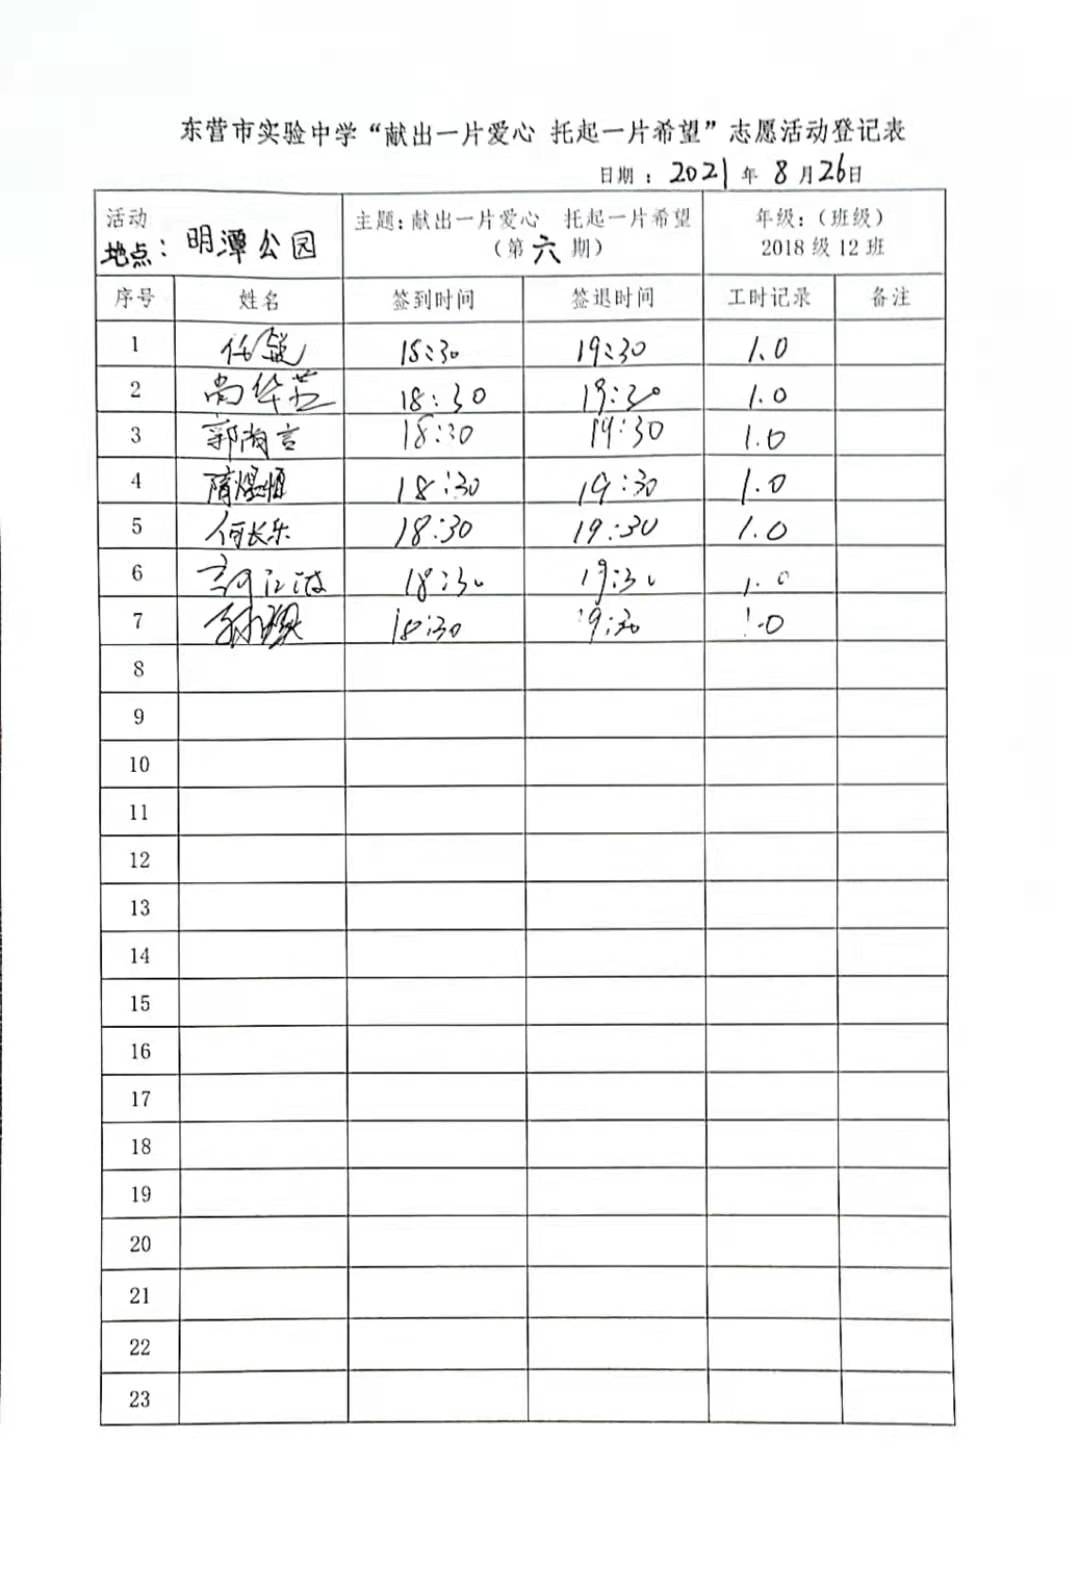 东营市实验中学“献出一片爱心 托起一片希望”志愿活动登记表
日期：2021年8月26日
活动地点：明潭公园 主题：献出一片爱心 托起一片希望（第六期） 年级：（班级）2018级12班
序号 姓名 签到时间 签退时间 工时记录 备注
1 任 18:30 19:30 1.0
2 尚华芸 18:30 19:30 1.0
3 郭尚言 18:30 19:30 1.0
4 隋煜恒 18:30 19:30 1.0
5 何长乐 18:30 19:30 1.0
6 18:30 19:30 1.0
7 18:30 19:30 1.0
8
9
10
11
12
13
14
15
16
17
18
19
20
21
22
23